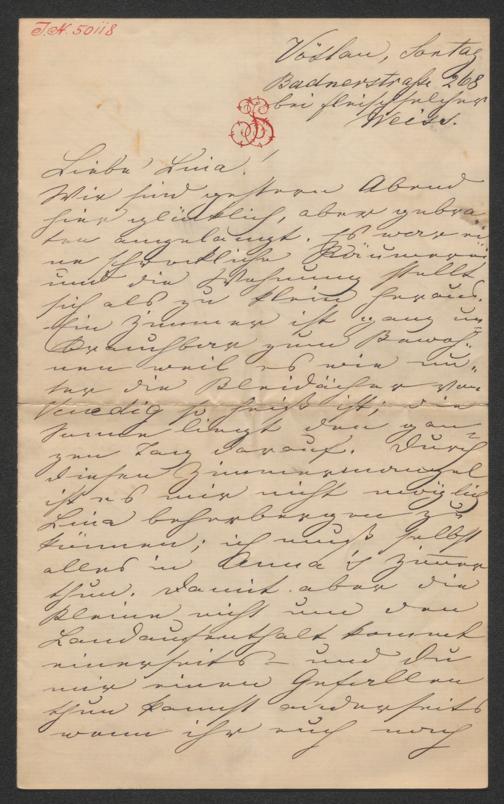 J.N. 50118
Vöslau, Sontag
Badnerstraße 268
bei Fleischselcher
Weiss.
Liebe Lina!
Wir sind gestern Abend
hier glücklich, aber gebra-
ten angelangt. Es war ei-
ne schreckliche Räumerei
und die Wohnung stellt
sich als zu klein heraus.
Ein Zimmer ist ganz un-
brauchbar zum Bewoh-
nen weil es wie un-
ter die Bleidächer von
Venedig so heiß ist; die
Sonne liegt den gan-
zen Tag darauf. Durch
diesen Zimmermangel
ist es mir nicht möglich
Lina beherbergen zu
können; ich muß selbst
alles in Anna's Zimmer
thun. Damit aber die
Kleine nicht um den
Landaufenthalt kommt
einerseits – und du
mir einen Gefallen
thun kannst anderseits
wenn ihr euch noch